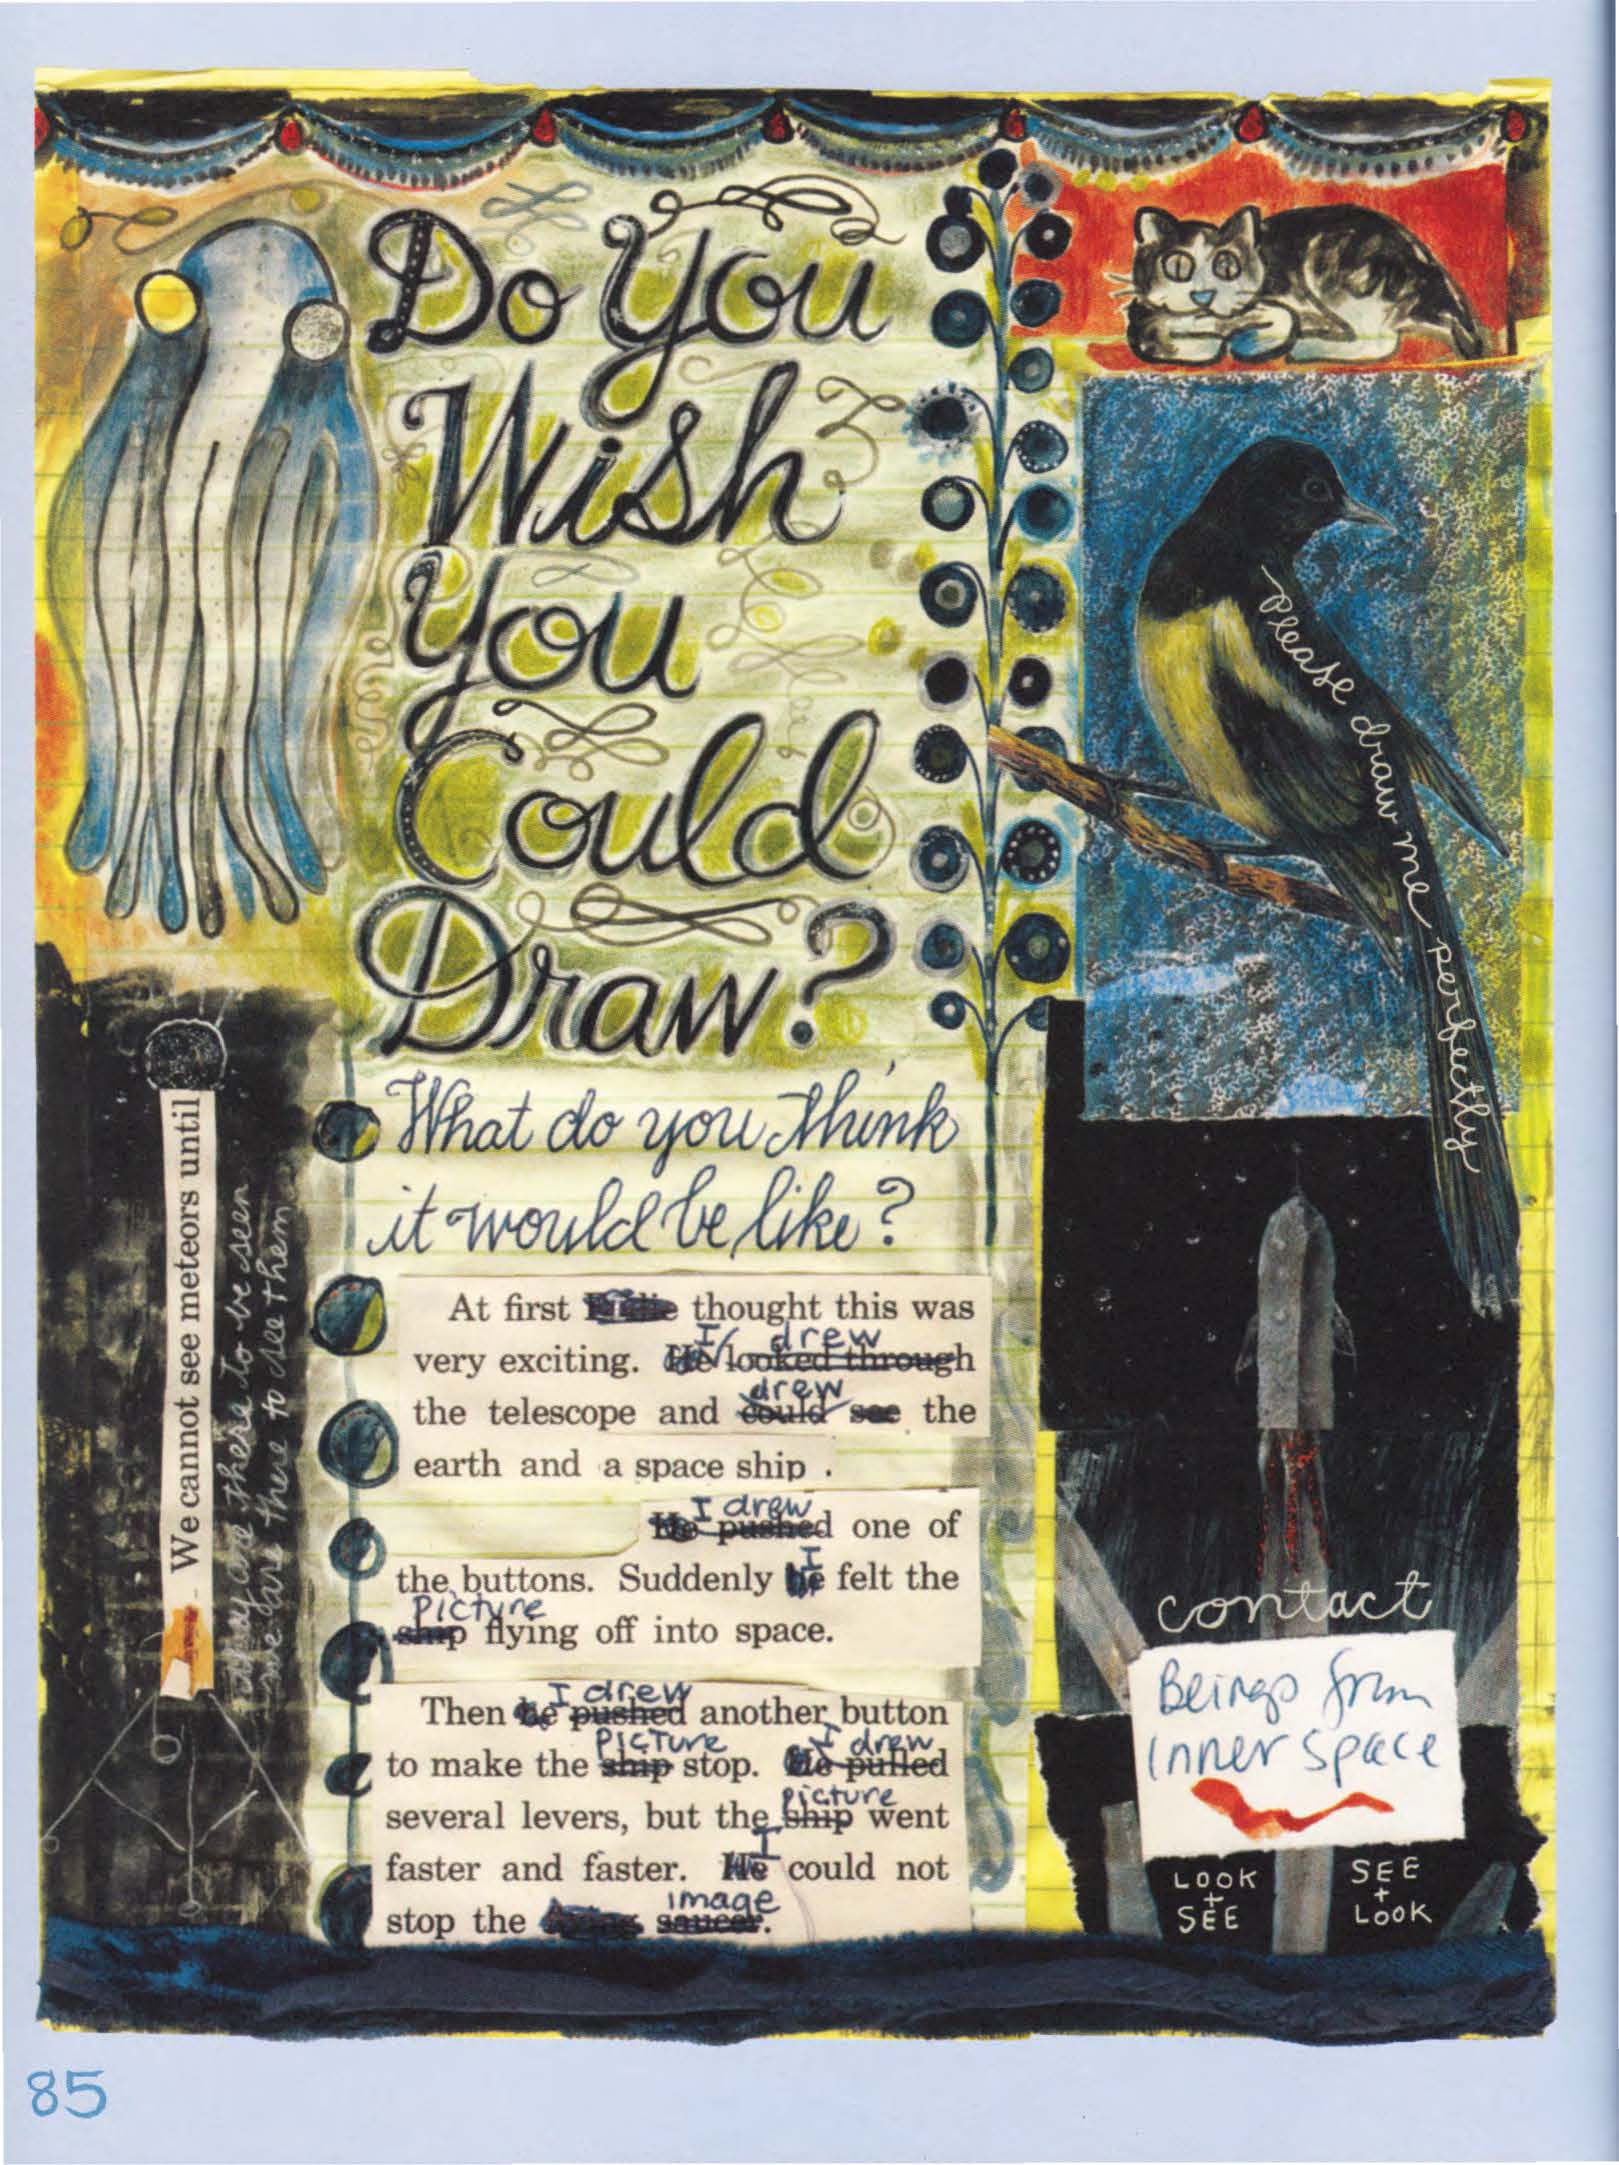 Do You
Wish
You
Could
Draw?
What do you think
it would be like?
At first thought this was
very exciting. He I looked through drew
the telescope and could see drew the
earth and a space ship .
He pushed I drew one of
the buttons. Suddenly he I felt the
ship picture flying off into space.
Then he pushed I drew another button
to make the ship picture stop. He pulled I drew
several levers, but the ship picture went
faster and faster. He I could not
stop the saucer image.
We cannot see meteors until
they are there to be seen
we are there to see them
Please draw me perfectly
contact
Beings from
inner space
LOOK
+
SEE
SEE
+
LOOK
85